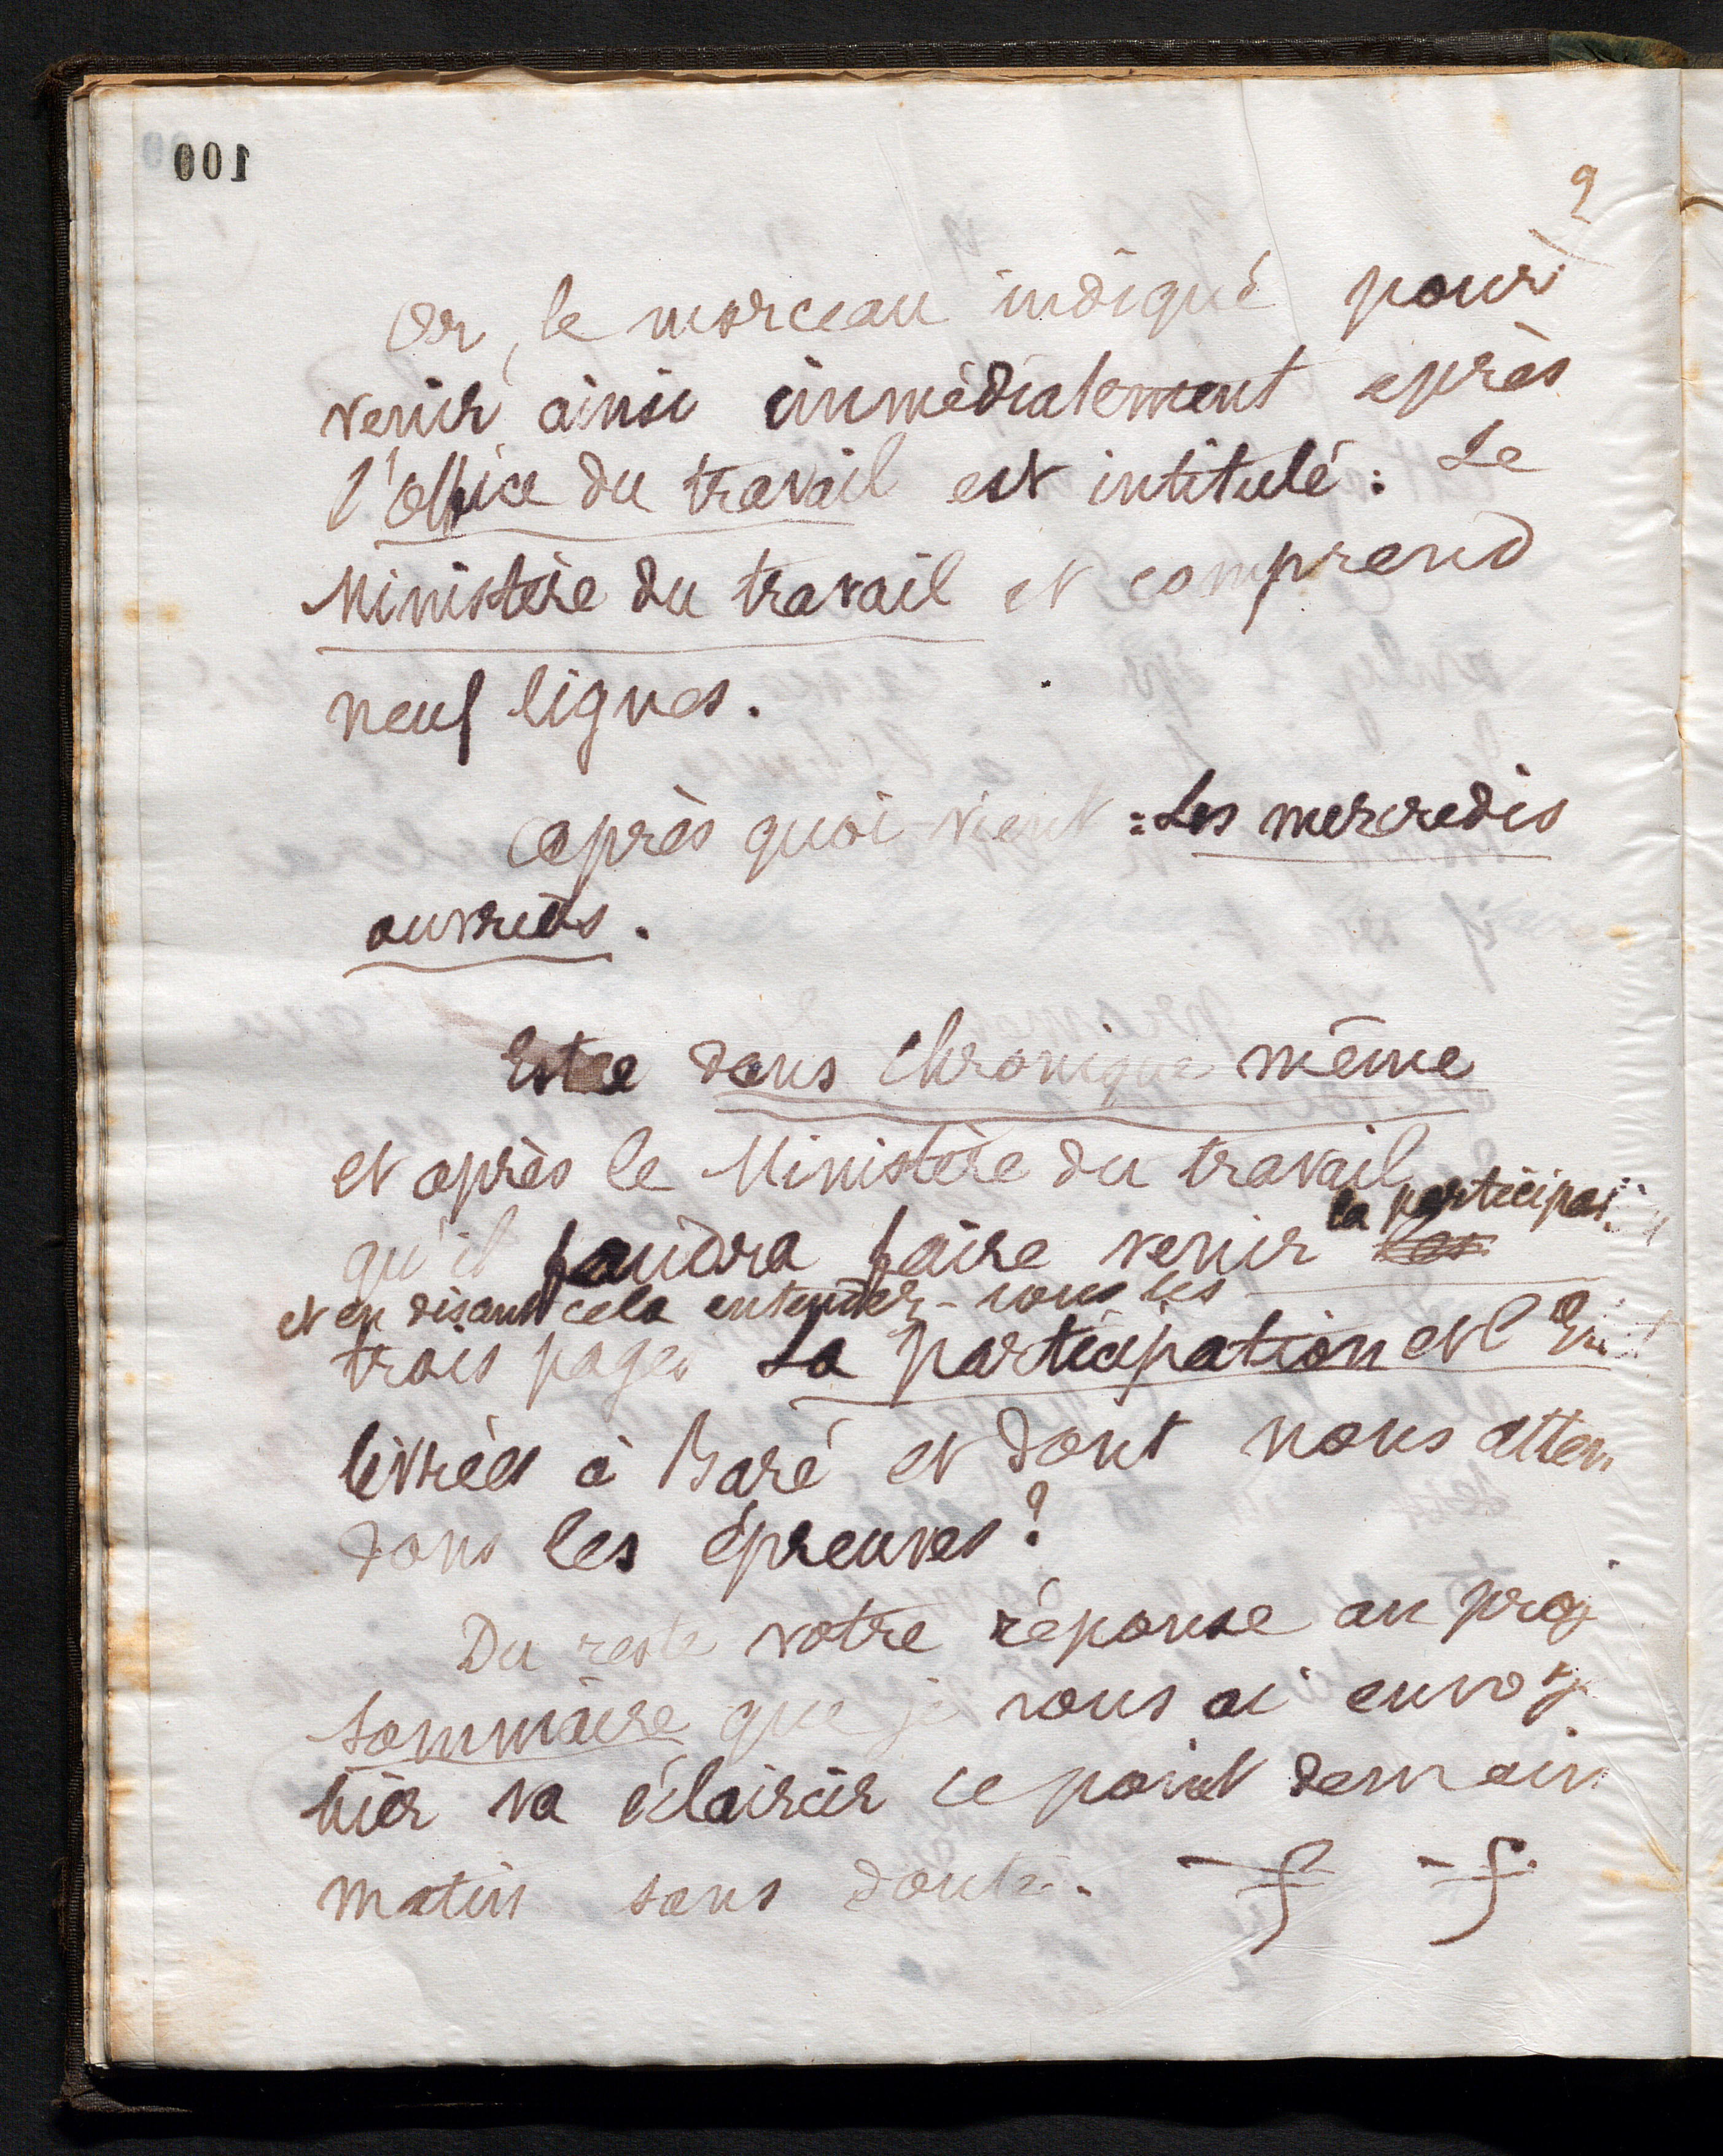 100
2
Or, le morceau indiqué pour
venir ainsi immédiatement après
l'Office du travail est intitulé : Le
Ministère du travail et comprend
neuf lignes.
après quoi vient : Les mercredis
ouvriers.
Est ce dans Chronique même
et après le Ministère du travail
la participation
qu'il faudra faire venir les
et en disant cela entendez-vous les
trois pages La participation et l'
livrées à Baré et dont nous atten
dons les épreuves ?
Du reste votre réponse au proj
sommaire que je vous ai envoy
hier va éclaircir ce point demain
matin sans doute.